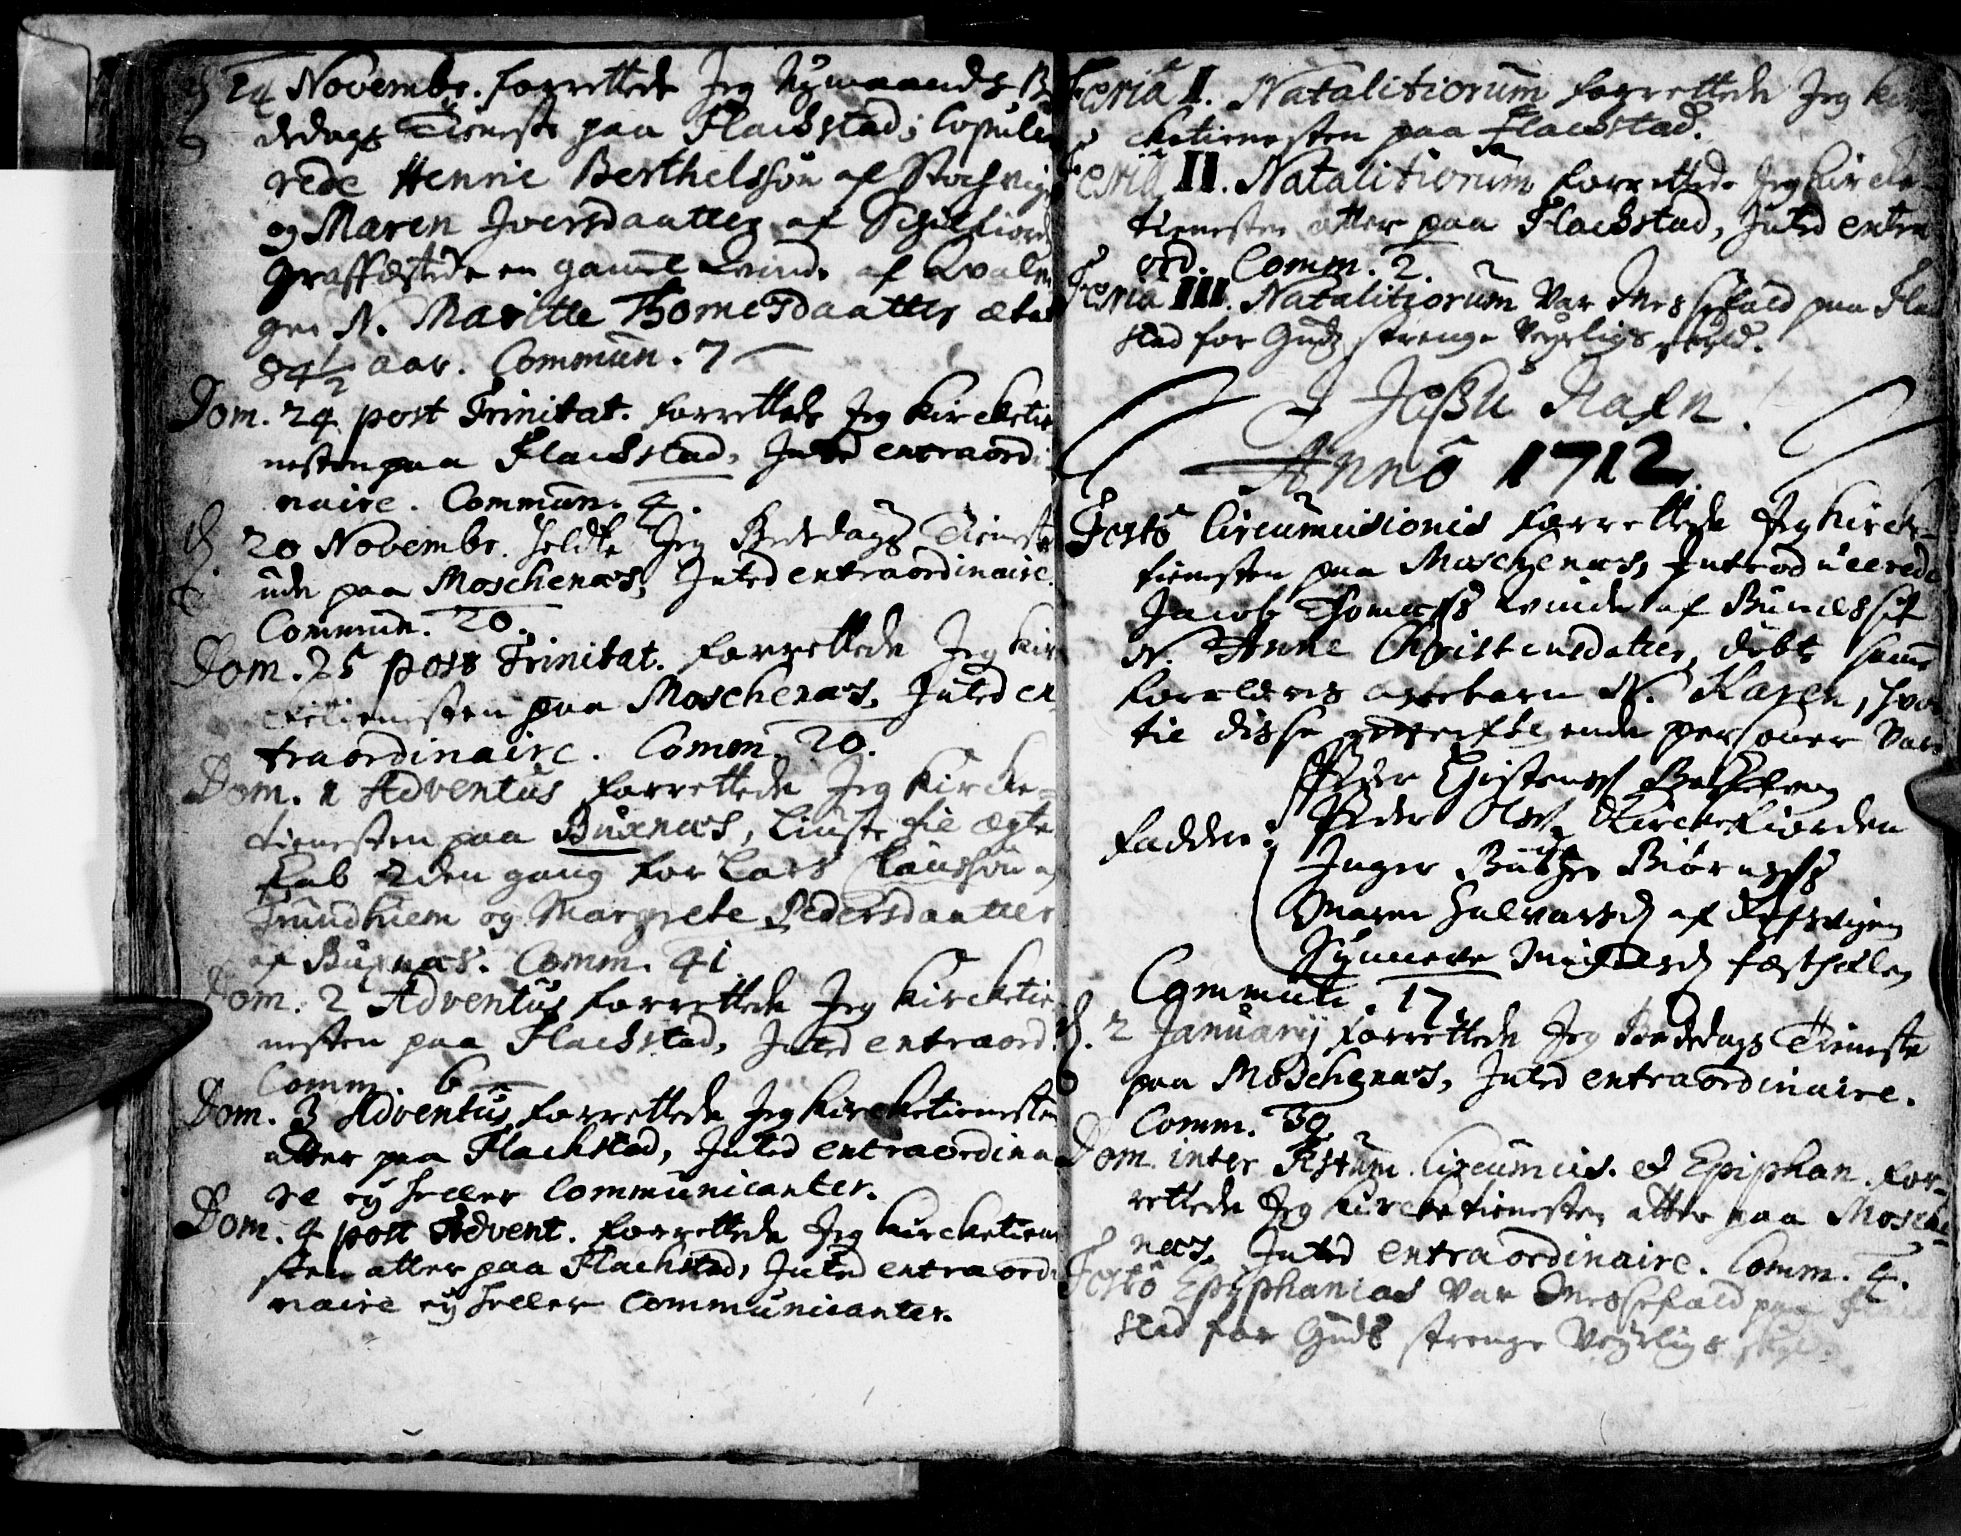 14 Novembr. forrettede Jeg Nymaaneds B
dedags Tieneste paa Flackstad; Copule
rede Henric Berthelssøn af
og Maren Joersdaatter af
Graffæstede en gamel Qvinde af Qvalvi
gen N. Maritte Thomesdaatter ætat
84½ aar. Commun. 7
Dom. 24 post Trinitat. forrettede Jeg Kircketie
nesten paa Flackstad, Inted extraordi-
naire. Commun. 4.
20 Novembr. holdte Jeg Bededags Tieneste
ude paa Moschenæs, Inted extraordinaire.
Commun. 20.
Dom. 25 post Trinitat. forrettede Jeg Kir
cketienesten paa Moschenæs, Inted ex
traordinaire. Comm. 20.
Dom. 1 Adventus forrettede Jeg Kircke-
tienesten paa Buxnæs, liuste til ægte
skab 2den gang for Lars Clausson
Trundhiem og Margrete Pedersdaatter
af Buxnæs. Comm. 41
Dom. 2 Adventus forrettede Jeg Kircketie
nesten paa Flackstad, Inted extraord.
Comm. 6
Dom. 3 Adventus forrettede Jeg Kircketienesten
atter paa Flackstad, Inted extraordina
re ey heller Communicanter.
Dom. 4 post Advent. forrettede Jeg Kircketiene
sten atter paa Flackstad, Inted extraordi
naire ey heller Communicanter.
Feria I. Natalitiorum forrettede Jeg Kir
cketienesten paa Flackstad.
Feria II. Natalitiorum forrettede Jeg Kircke-
tienesten atter paa Flackstad, Inted extra
ord. Comm. 2.
Feria III. Natalitiorum var Messefald paa Flack
stad for Guds strenge Veyrligs skyld.
I Jessu Nafn.
Anno 1712
Festo Circumcisionis forrettede Jeg Kircke-
tienesten paa Moschenæs, Introducerede
Jacob Thomess Qvinde af
N. Anne Christensdatter, døbte samme
forældris ægtebarn N. Karen, hvor
til disse efterfølgende personer vare
Peder Christens
Faddere: Peder Kirckefiorden
Inger
Maren Halvarsd af
Synneve
Communi. 17.
2 January forrettede Jeg Bededags Tieneste
paa Moschenæs, Inted extraordinaire.
Comm. 39
Dom. inter Festum Circumcis. et Epiphan. for-
rettede Jeg Kircketienesten atter paa Mosche-
næs, Inted extraordinaire. Comm. 4.
Festo Epiphanias var Messefald paa Flack
stad for Guds strenge Veyrligs skyld.